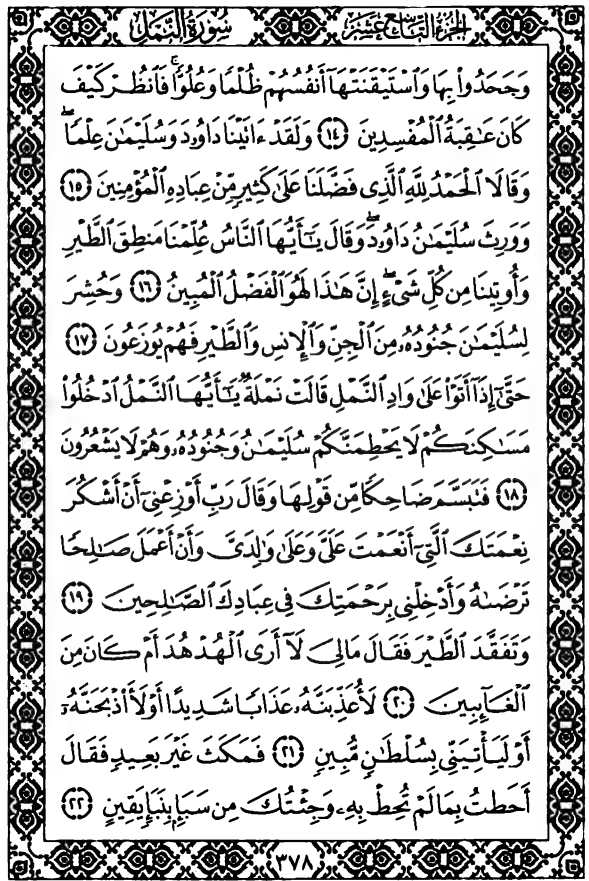 الجزء التاسع عشر
سورة النمل
وَجَحَدُوا۟ بِهَا وَٱسْتَيْقَنَتْهَآ أَنفُسُهُمْ ظُلْمًا وَعُلُوًّا ۚ فَٱنظُرْ كَيْفَ
كَانَ عَـٰقِبَةُ ٱلْمُفْسِدِينَ ﴿١٤﴾ وَلَقَدْ ءَاتَيْنَا دَاوُۥدَ وَسُلَيْمَـٰنَ عِلْمًا ۖ
وَقَالَا ٱلْحَمْدُ لِلَّهِ ٱلَّذِى فَضَّلَنَا عَلَىٰ كَثِيرٍ مِّنْ عِبَادِهِ ٱلْمُؤْمِنِينَ ﴿١٥﴾
وَوَرِثَ سُلَيْمَـٰنُ دَاوُۥدَ ۖ وَقَالَ يَـٰٓأَيُّهَا ٱلنَّاسُ عُلِّمْنَا مَنطِقَ ٱلطَّيْرِ
وَأُوتِينَا مِن كُلِّ شَىْءٍ ۖ إِنَّ هَـٰذَا لَهُوَ ٱلْفَضْلُ ٱلْمُبِينُ ﴿١٦﴾ وَحُشِرَ
لِسُلَيْمَـٰنَ جُنُودُهُۥ مِنَ ٱلْجِنِّ وَٱلْإِنسِ وَٱلطَّيْرِ فَهُمْ يُوزَعُونَ ﴿١٧﴾
حَتَّىٰٓ إِذَآ أَتَوْا۟ عَلَىٰ وَادِ ٱلنَّمْلِ قَالَتْ نَمْلَةٌ يَـٰٓأَيُّهَا ٱلنَّمْلُ ٱدْخُلُوا۟
مَسَـٰكِنَكُمْ لَا يَحْطِمَنَّكُمْ سُلَيْمَـٰنُ وَجُنُودُهُۥ وَهُمْ لَا يَشْعُرُونَ
﴿١٨﴾ فَتَبَسَّمَ ضَاحِكًا مِّن قَوْلِهَا وَقَالَ رَبِّ أَوْزِعْنِىٓ أَنْ أَشْكُرَ
نِعْمَتَكَ ٱلَّتِىٓ أَنْعَمْتَ عَلَىَّ وَعَلَىٰ وَٰلِدَىَّ وَأَنْ أَعْمَلَ صَـٰلِحًا
تَرْضَىٰهُ وَأَدْخِلْنِى بِرَحْمَتِكَ فِى عِبَادِكَ ٱلصَّـٰلِحِينَ ﴿١٩﴾
وَتَفَقَّدَ ٱلطَّيْرَ فَقَالَ مَالِىَ لَآ أَرَى ٱلْهُدْهُدَ أَمْ كَانَ مِنَ
ٱلْغَآئِبِينَ ﴿٢٠﴾ لَأُعَذِّبَنَّهُۥ عَذَابًا شَدِيدًا أَوْ لَأَا۟ذْبَحَنَّهُۥٓ
أَوْ لَيَأْتِيَنِّى بِسُلْطَـٰنٍ مُّبِينٍ ﴿٢١﴾ فَمَكَثَ غَيْرَ بَعِيدٍ فَقَالَ
أَحَطتُ بِمَا لَمْ تُحِطْ بِهِۦ وَجِئْتُكَ مِن سَبَإٍۭ بِنَبَإٍ يَقِينٍ ﴿٢٢﴾
٣٧٨